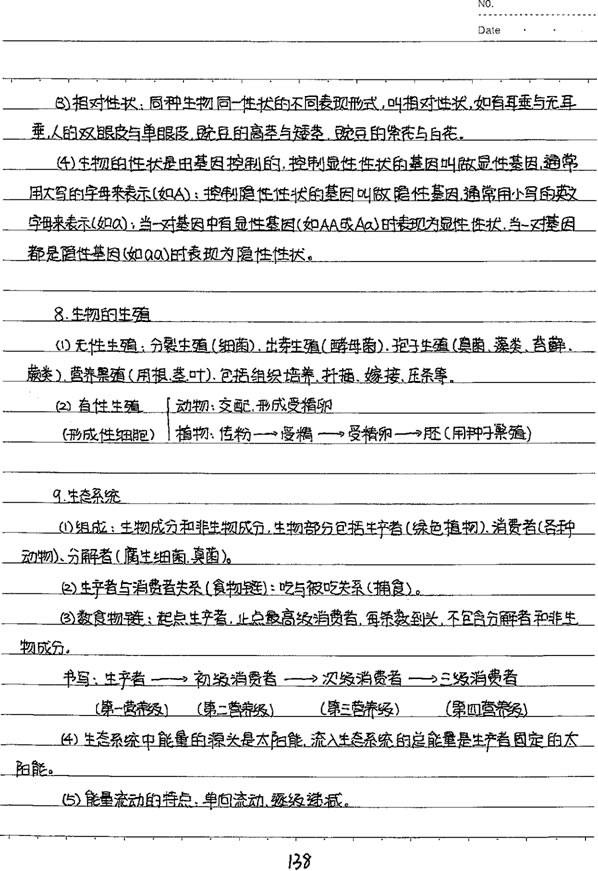 No.
Date
(3)相对性状：同种生物同一性状的不同表现形式,叫相对性状,如有耳垂与无耳
垂,人的双眼皮与单眼皮,豌豆的高茎与矮茎,豌豆的紫花与白花。
(4)生物的性状是由基因控制的,控制显性性状的基因叫做显性基因,通常
用大写的字母来表示(如A)；控制隐性性状的基因叫做隐性基因,通常用小写的英文
字母来表示(如a)；当一对基因中有显性基因(如AA或Aa)时表现为显性性状,当一对基因
都是隐性基因(如aa)时表现为隐性性状。
8.生物的生殖
(1)无性生殖：分裂生殖(细菌)、出芽生殖(酵母菌)、孢子生殖(真菌、藻类、苔藓、
蕨类)、营养繁殖(用根、茎、叶)、包括组织培养、扦插、嫁接、压条等。
(2)有性生殖 动物：交配,形成受精卵
(形成性细胞) 植物：传粉→受精→受精卵→胚(用种子繁殖)
9.生态系统
(1)组成：生物成分和非生物成分,生物部分包括生产者(绿色植物)、消费者(各种
动物)、分解者(腐生细菌、真菌)。
(2)生产者与消费者关系(食物链)：吃与被吃关系(捕食)。
(3)数食物链：起点生产者,止点最高级消费者,每条数到头,不包含分解者和非生
物成分。
书写：生产者→初级消费者→次级消费者→三级消费者
(第一营养级) (第二营养级) (第三营养级) (第四营养级)
(4)生态系统中能量的源头是太阳能,流入生态系统的总能量是生产者固定的太
阳能。
(5)能量流动的特点：单向流动、逐级递减。
138